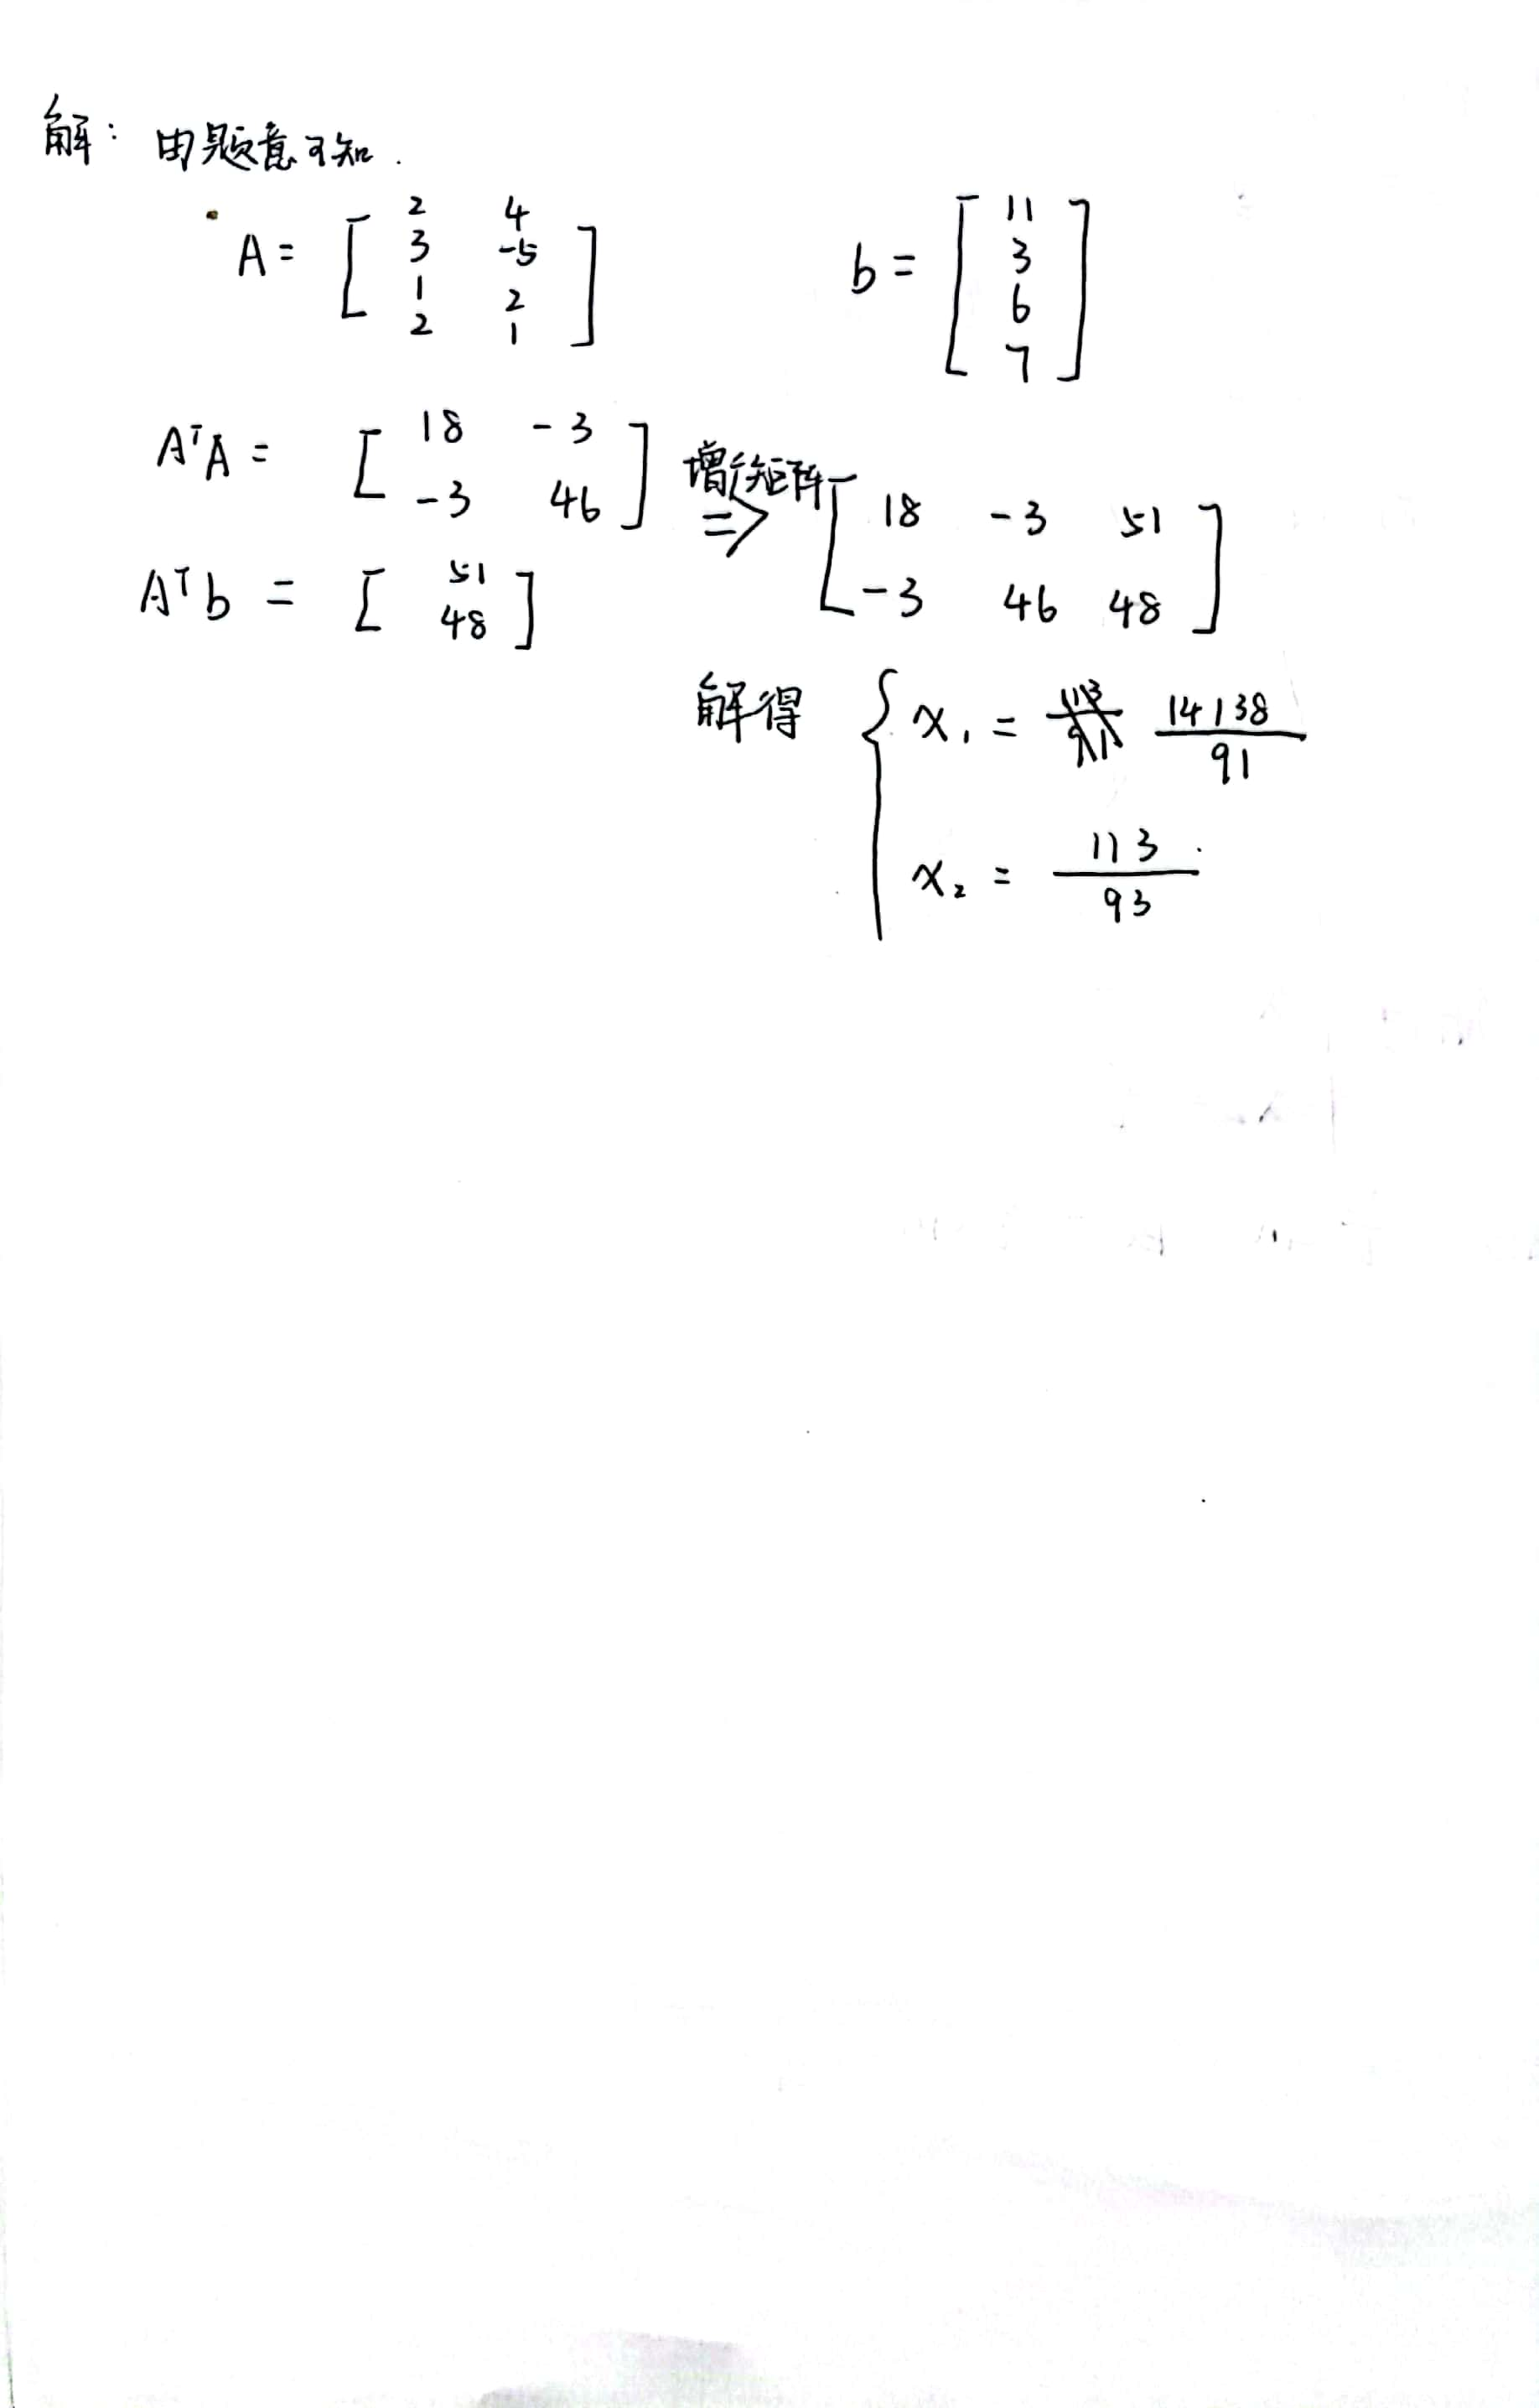 解: 由题意可知.
A = [ 2 4 b = [ 11
3 -5 3
1 2 6
2 1 ] 7 ]
AᵀA = [ 18 -3
-3 46 ] 增广矩阵 ⇒ [ 18 -3 51
-3 46 48 ]
Aᵀb = [ 51
48 ]
解得 { x₁ = 14138/91
x₂ = 113/93